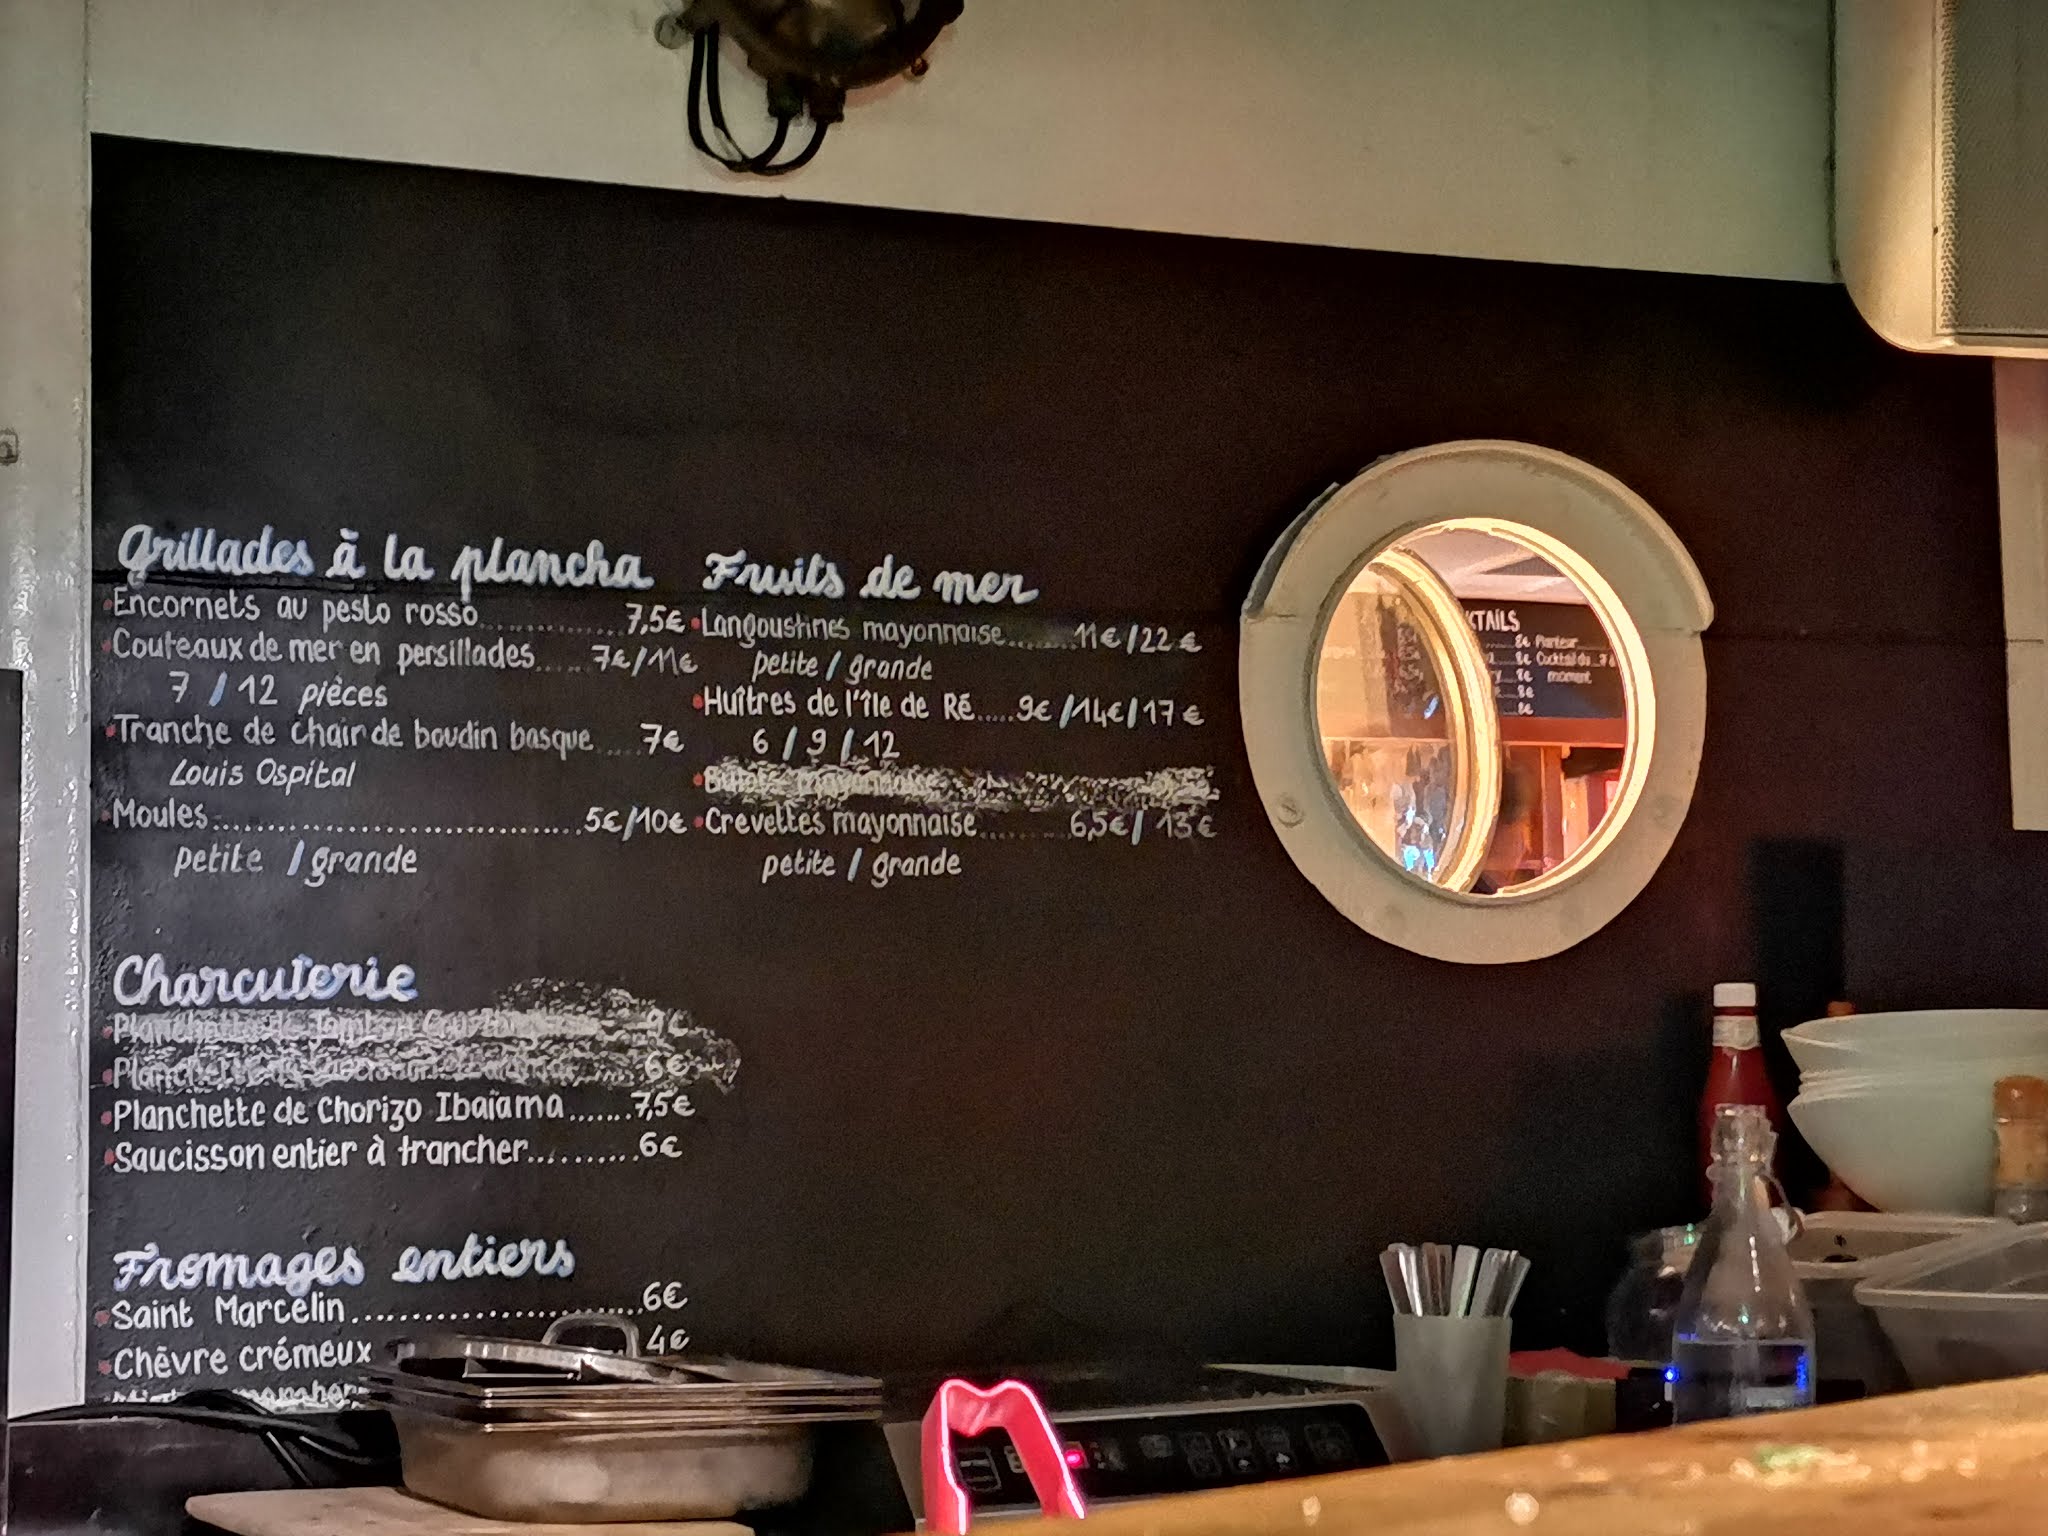 Grillades à la plancha
Encornets au pesto rosso.................7,5€
Couteaux de mer en persillades.....7€/11€
7 / 12 pièces
Tranche de chair de boudin basque.....7€
Louis Ospital
Moules.................................5€/10€
petite / grande
Fruits de mer
Langoustines mayonnaise.......11€/22€
petite / grande
Huîtres de l'île de Ré.....9€/14€/17€
6 / 9 / 12
mayonnaise
Crevettes mayonnaise.........6,5€/13€
petite / grande
Charcuterie
Planchette de 9€
6€
Planchette de Chorizo Ibaïama.......7,5€
Saucisson entier à trancher..........6€
Fromages entiers
Saint Marcelin.........................6€
Chèvre crémeux 4€
CKTAILS
8€ Planteur
8€ Cocktail du..7€
8€ moment
8€
8€